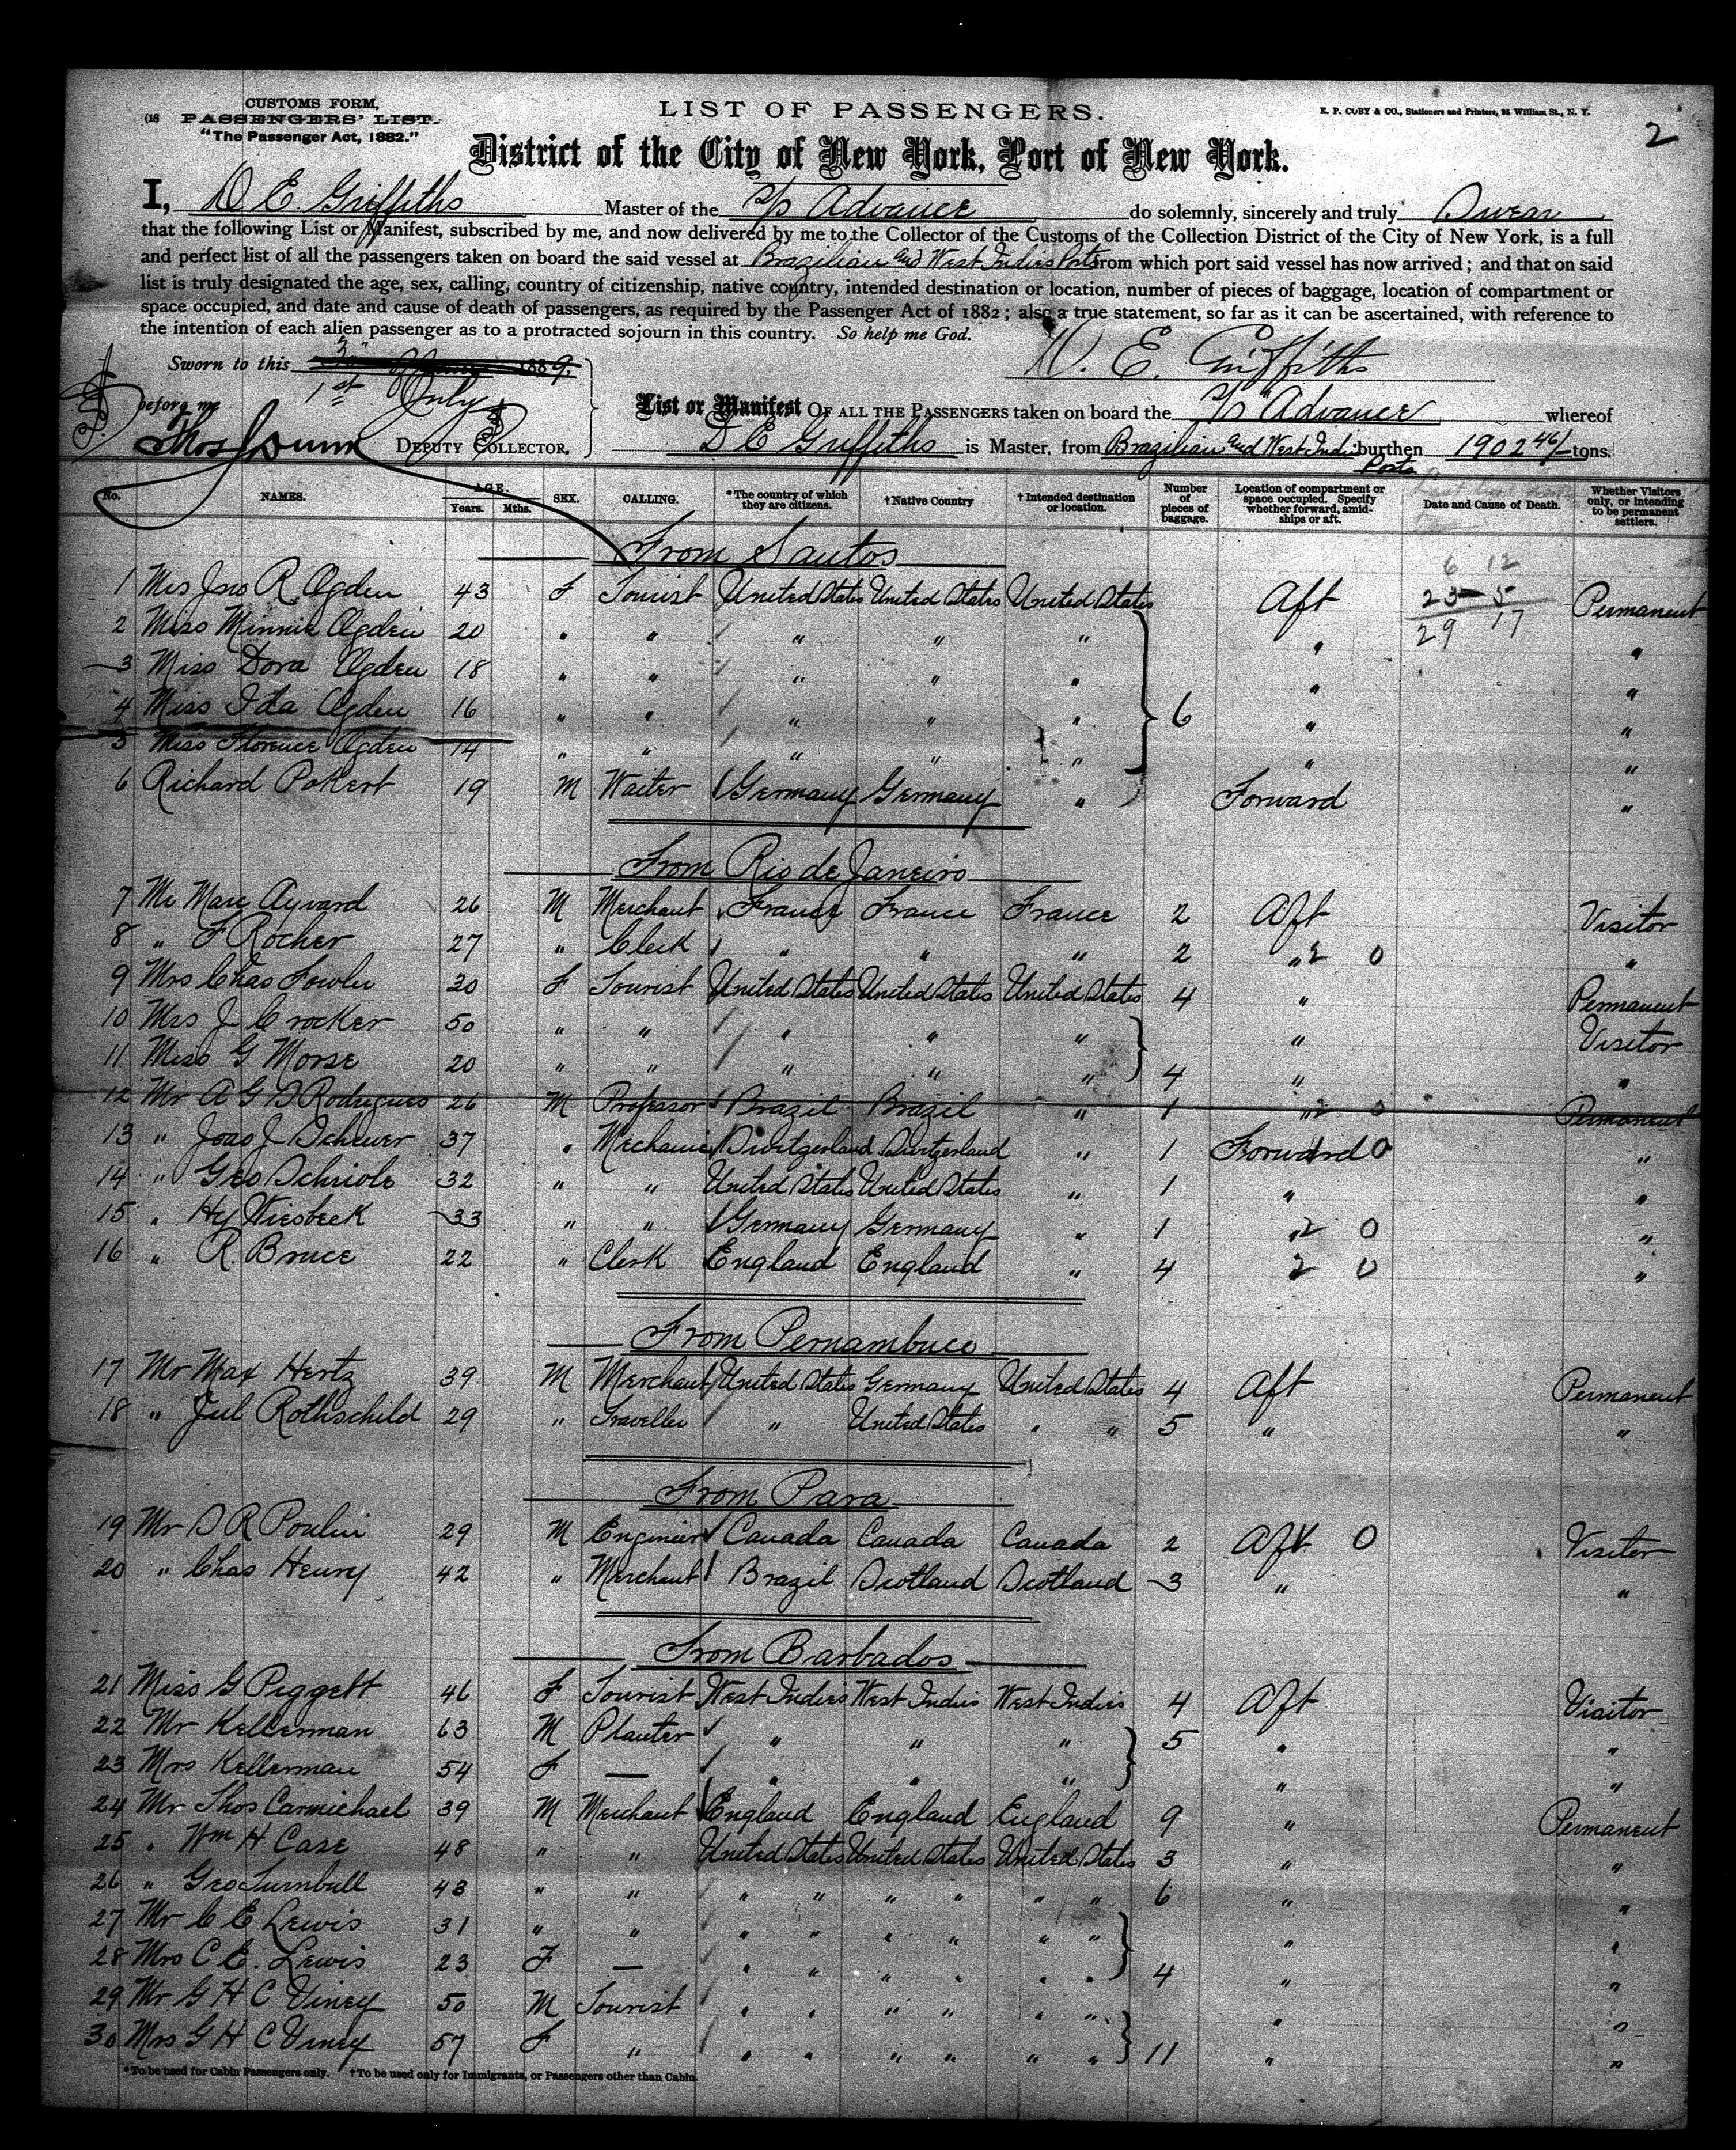 CUSTOMS FORM,
(18 PASSENGERS' LIST.
"The Passenger Act, 1882."
LIST OF PASSENGERS.
E. P. COBY & CO., Stationers and Printers, 95 William St., N. Y.
2
District of the City of New York, Port of New York.
I, D E. Griffiths Master of the S/S Advance do solemnly, sincerely and truly Swear
that the following List or Manifest, subscribed by me, and now delivered by me to the Collector of the Customs of the Collection District of the City of New York, is a full
and perfect list of all the passengers taken on board the said vessel at Brazilian and West Indies Ports from which port said vessel has now arrived; and that on said
list is truly designated the age, sex, calling, country of citizenship, native country, intended destination or location, number of pieces of baggage, location of compartment or
space occupied, and date and cause of death of passengers, as required by the Passenger Act of 1882; also a true statement, so far as it can be ascertained, with reference to
the intention of each alien passenger as to a protracted sojourn in this country. So help me God.
Sworn to this 1889.
D. E. Griffiths
1st July
before me
Thos Dunn DEPUTY COLLECTOR.
List or Manifest OF ALL THE PASSENGERS taken on board the S/S "Advance" whereof
D E Griffiths is Master, from Brazilian and West Indies Ports burthen 1902 46/ tons.
No. NAMES. AGE. Years. Mths. SEX. CALLING. *The country of which they are citizens. †Native Country †Intended destination or location. Number of pieces of baggage. Location of compartment or space occupied. Specify whether forward, amidships or aft. Date and Cause of Death. Whether Visitors only, or intending to be permanent settlers.
From Santos
6 12
23 5
29 17
1 Mrs Jno R Ogden 43 F Tourist United States United States United States Aft Permanent
2 Miss Minnie Ogden 20 " " " " " " "
3 Miss Dora Ogden 18 " " " " " " "
4 Miss Ida Ogden 16 " " " " " 6 " "
5 Miss Florence Ogden 14 " " " " " " "
6 Richard Pokert 19 M Waiter Germany Germany " Forward "
From Rio de Janeiro
7 Mr Marc Ayvard 26 M Merchant France France France 2 Aft Visitor
8 " F Rocher 27 " Clerk " " " 2 " 2 0 "
9 Mrs Chas Fowler 30 F Tourist United States United States United States 4 " Permanent
10 Mrs J Crocker 50 " " " " " " Visitor
11 Miss G Morse 20 " " " " " 4 " "
12 Mr A G D Rodrigues 26 M Professor Brazil Brazil " 1 " 2 0 Permanent
13 " Joao J Schewer 37 " Mechanic Switzerland Switzerland " 1 Forward 0 "
14 " Geo Schriole 32 " " United States United States " 1 " "
15 " Hy Wiesbeck 33 " " Germany Germany " 1 " 2 0 "
16 " R. Bruce 22 " Clerk England England " 4 2 0 "
From Pernambuco
17 Mr Max Hertz 39 M Merchant United States Germany United States 4 Aft Permanent
18 " Jul Rothschild 29 " Traveller " United States " " 5 " "
From Para
19 Mr D R Poulin 29 M Engineer Canada Canada Canada 2 Aft 0 Visitor
20 " Chas Henry 42 " Merchant Brazil Scotland Scotland 3 " "
From Barbados
21 Miss G Piggett 46 F Tourist West Indies West Indies West Indies 4 Aft Visitor
22 Mr Kellerman 63 M Planter " " " 5 " "
23 Mrs Kellerman 54 F — " " " " "
24 Mr Thos Carmichael 39 M Merchant England England England 9 " Permanent
25 " Wm H Case 48 " " United States United States United States 3 " "
26 " Geo Turnbull 43 " " " " " " " " 6 " "
27 Mr C E Lewis 31 " " " " " " " " " "
28 Mrs C E. Lewis 23 F — " " " " " " 4 " "
29 Mr G H C Viney 50 M Tourist " " " " " " " "
30 Mrs G H C Viney 57 F " " " " " " " 11 " "
*To be used for Cabin Passengers only. †To be used only for Immigrants, or Passengers other than Cabin.